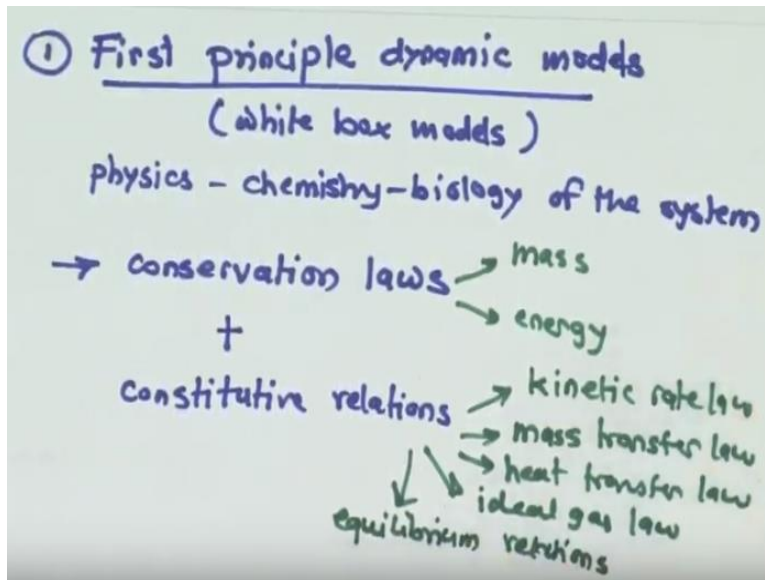 ① First principle dynamic models
(white box models)
physics - chemistry-biology of the system
→ conservation laws
mass
energy
+
constitutive relations
kinetic rate law
mass transfer law
heat transfer law
ideal gas law
equilibrium relations